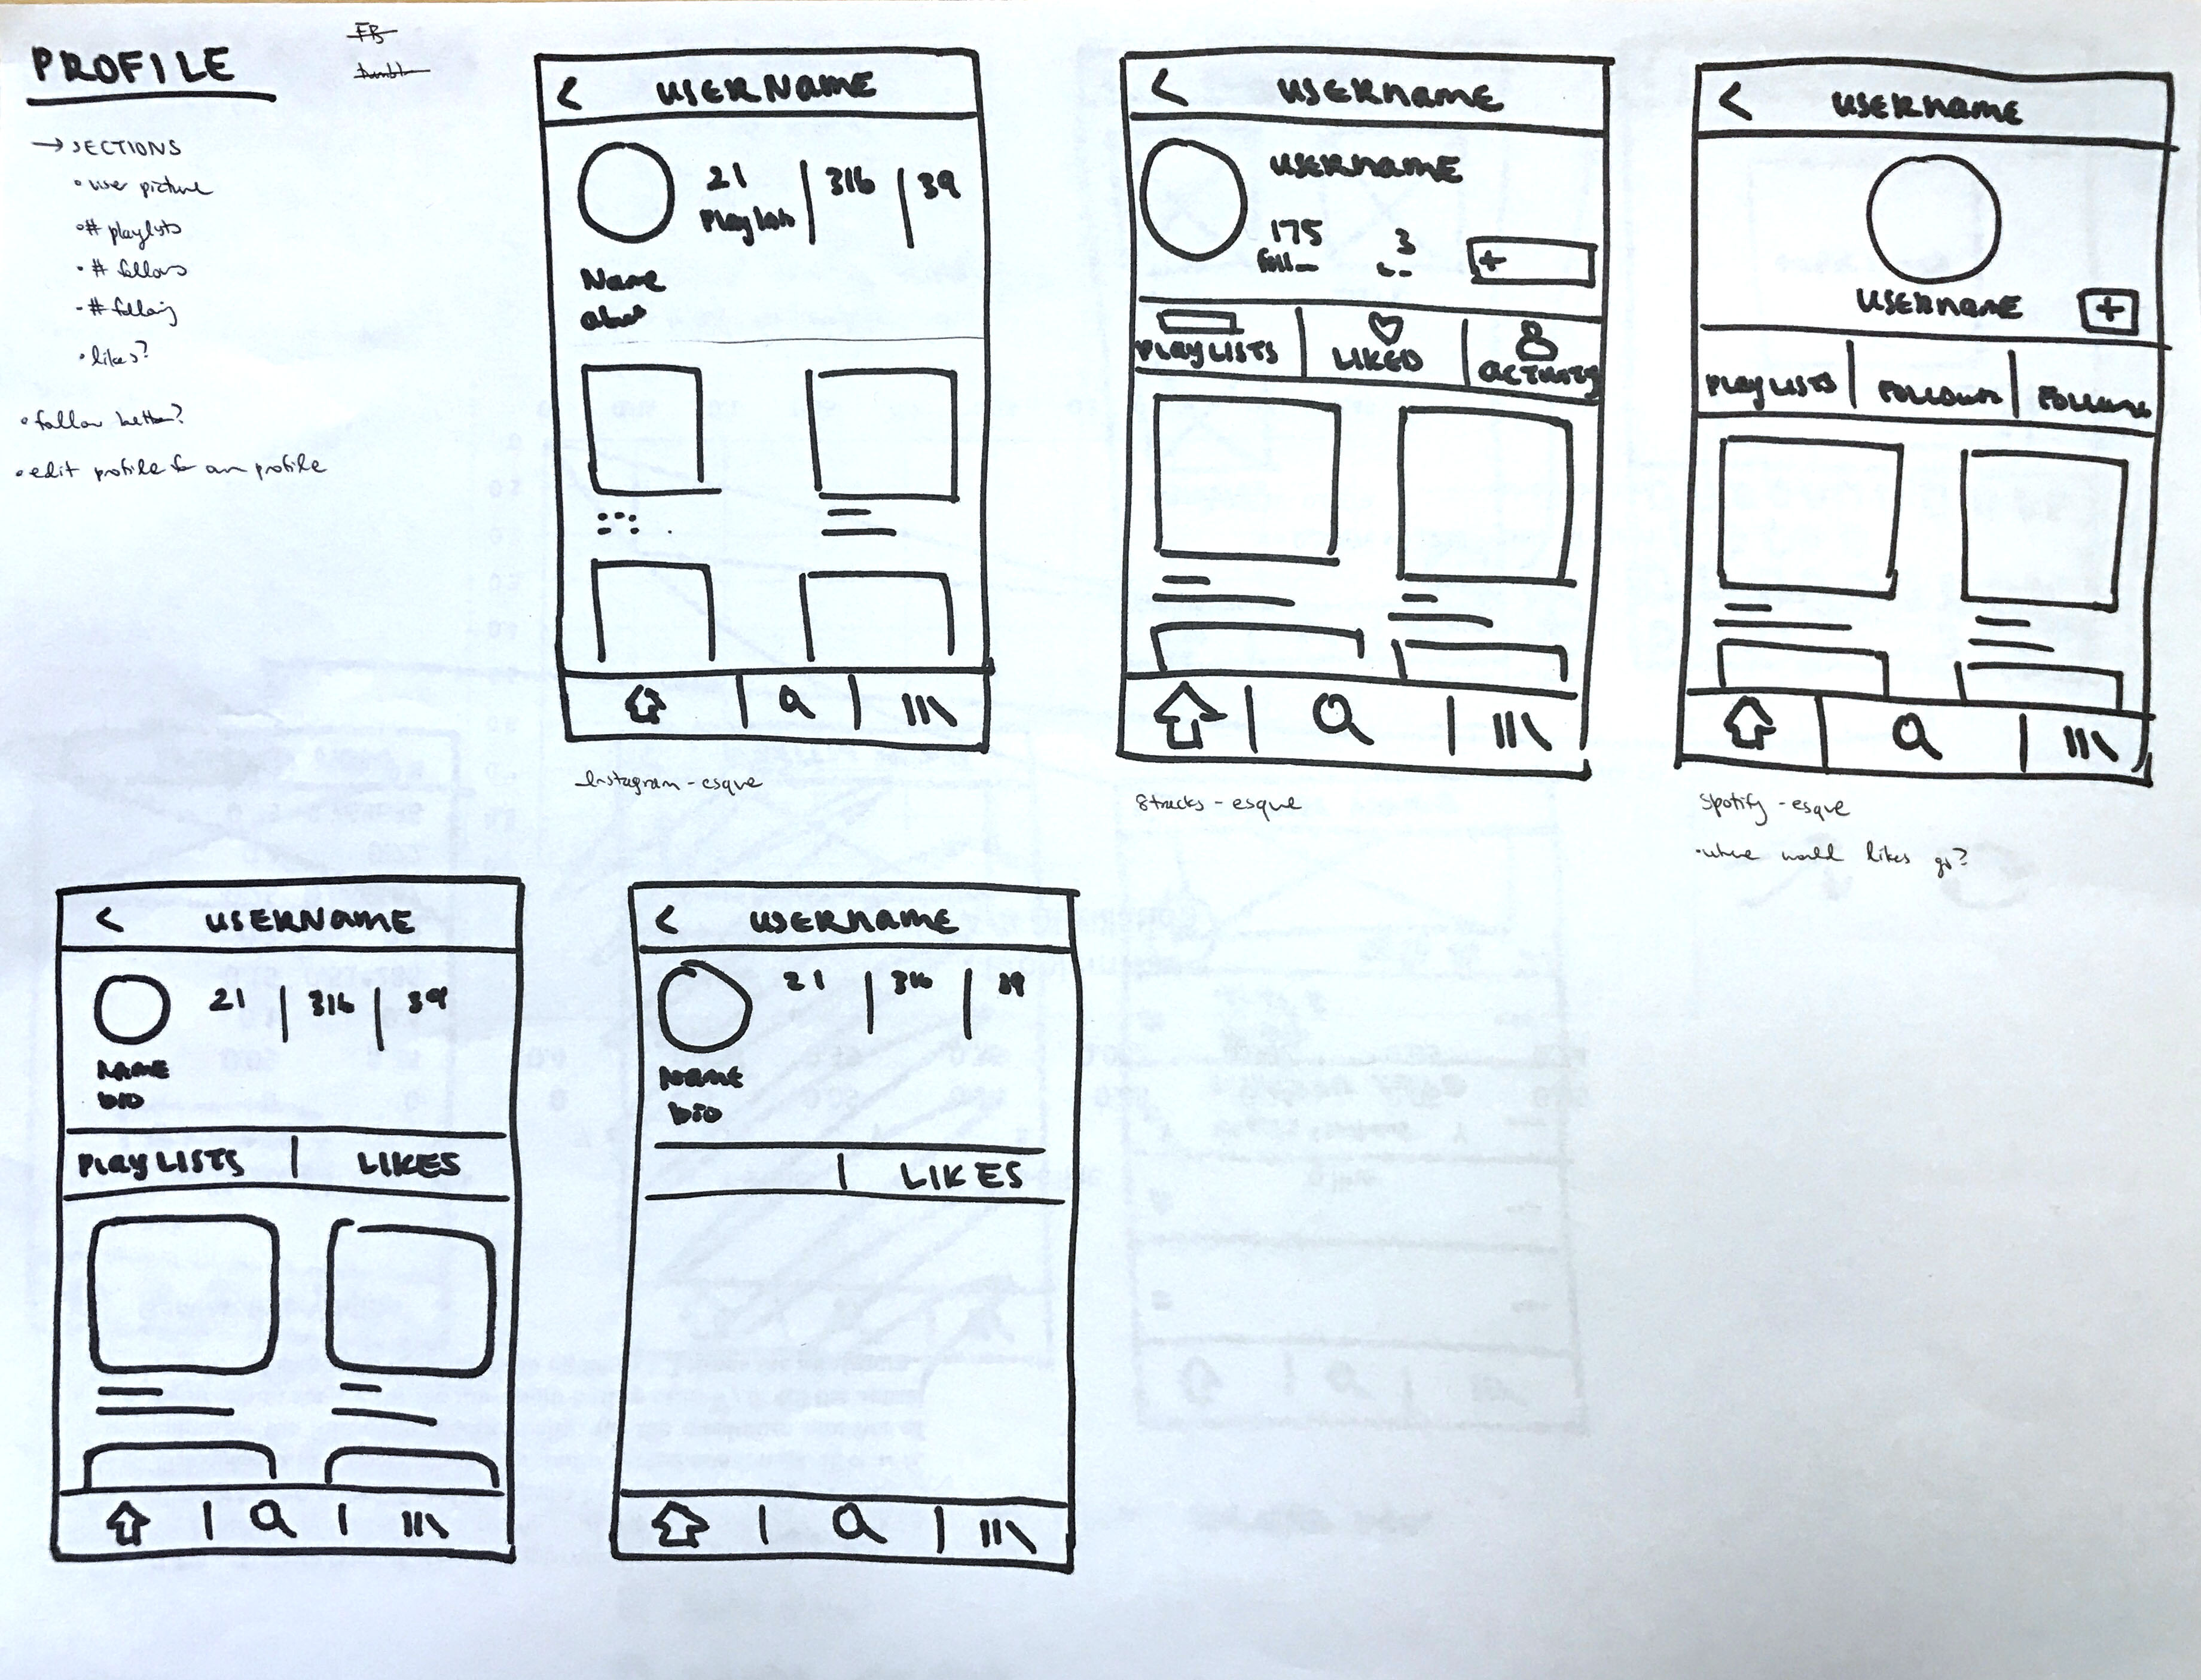 PROFILE
FB
tumblr
→ SECTIONS
• user picture
• # playlists
• # follows
• # following
• likes?
• follow button?
• edit profile for own profile
< USERNAME
21 | 316 | 39
Playlists
Name
about
Instagram-esque
< USERNAME
USERNAME
175 3
foll
+
PLAYLISTS | LIKED | ACTIVITY
8tracks - esque
< USERNAME
USERNAME +
PLAYLISTS | FOLLOWERS | FOLLOWING
Spotify - esque
• where would likes go?
< USERNAME
21 | 316 | 39
NAME
bio
PLAYLISTS | LIKES
< USERNAME
21 | 316 | 39
Name
bio
| LIKES